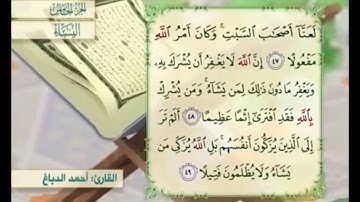 الجزء الخامس
النساء
لَعَنَّا أَصْحَٰبَ ٱلسَّبْتِ ۚ وَكَانَ أَمْرُ ٱللَّهِ
مَفْعُولًا ٤٧ إِنَّ ٱللَّهَ لَا يَغْفِرُ أَن يُشْرَكَ بِهِۦ
وَيَغْفِرُ مَا دُونَ ذَٰلِكَ لِمَن يَشَآءُ ۚ وَمَن يُشْرِكْ
بِٱللَّهِ فَقَدِ ٱفْتَرَىٰٓ إِثْمًا عَظِيمًا ٤٨ أَلَمْ تَرَ
إِلَى ٱلَّذِينَ يُزَكُّونَ أَنفُسَهُم ۚ بَلِ ٱللَّهُ يُزَكِّى مَن
يَشَآءُ وَلَا يُظْلَمُونَ فَتِيلًا ٤٩
القارئ: أحمد الدباغ